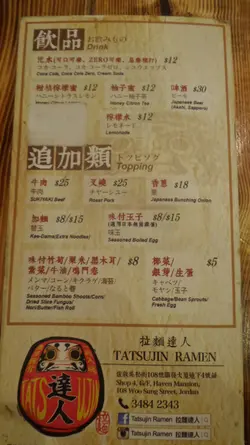 飲品 お飲みもの
Drink
汽水(可口可樂, ZERO可樂, 忌廉梳打) $12
コカ・コーラ, コカ・コーラゼロ, クリームソーダ
Coca Cola, Coca Cola Zero, Cream Soda
柑桔檸檬蜜 $12
Honey Citron Lemon
柚子蜜 $12
ハニー柚子茶
Honey Citron Tea
啤酒 $30
ビール
Japanese Beer
(Asahi, Sapporo)
檸檬水 $12
レモネード
Lemonade
追加類 トッピング
Topping
牛肉 $25
牛肉
SUKIYAKI Beef
叉燒 $25
チャーシュー
Roast Pork
香蔥 $18
葱
Japanese Bunching Onion
加麵 $8/$15
替玉
Kae-Dama(Extra Noodles)
味付玉子 $8/$15
味玉
Seasoned Boiled Egg
味付竹筍/粟米/黑木耳/
紫菜/牛油/鳴門卷 $8
メンマ/コーン/キクラゲ/海苔
バター/なると巻
Seasoned Bamboo Shoots/Corn/
Dried Slice Fungus/
Nori/Butter/Fish Roll
椰菜/ $5
銀芽/生蛋
キャベツ/
モヤシ/玉子
Cabbage/Bean Sprouts/
Fresh Egg
達人
拉麵達人
TATSUJIN RAMEN
Shop 4, G/F, Haven Mansion,
108 Woo Sung Street, Jordan
3484 2343
Tatsujin Ramen 拉麵達人
Tatsujin Ramen 拉麵達人